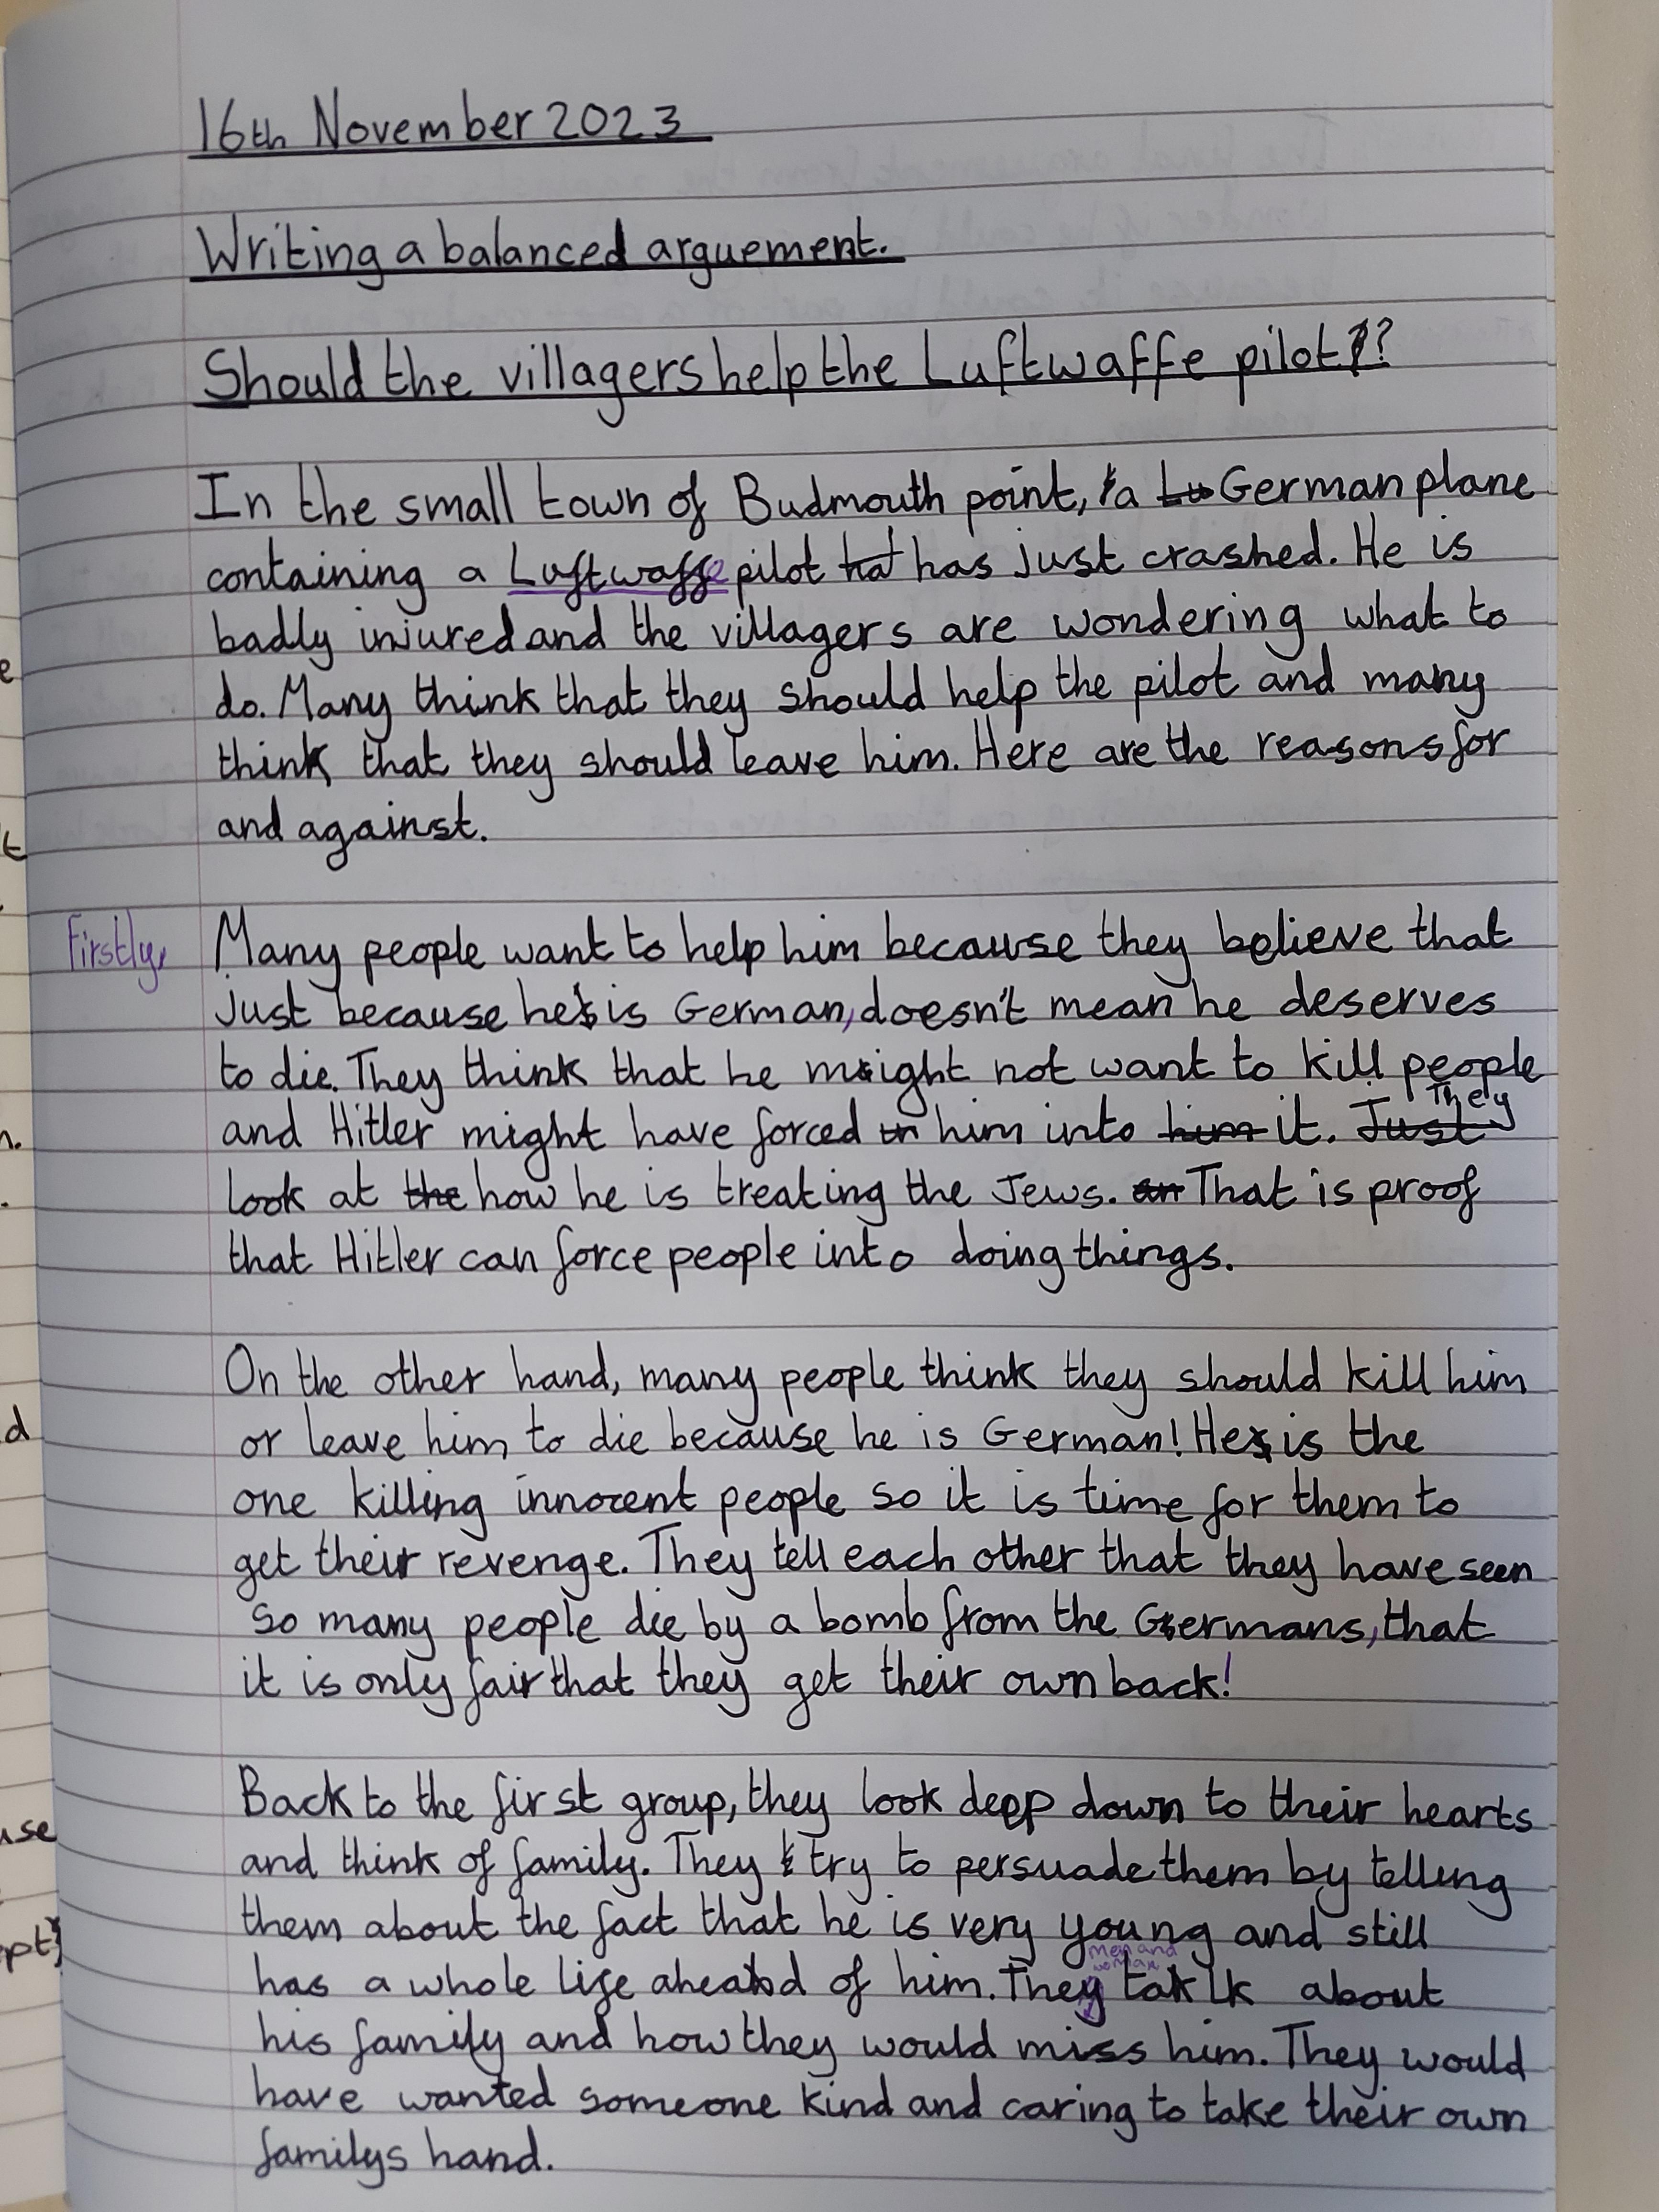 16th November 2023
Writing a balanced arguement.
Should the villagers help the Luftwaffe pilot?
In the small town of Budmouth point, a German plane
containing a Luftwaffe pilot has just crashed. He is
badly injured and the villagers are wondering what to
do. Many think that they should help the pilot and many
think that they should leave him. Here are the reasons for
and against.
Firstly, Many people want to help him because they believe that
just because he is German, doesn't mean he deserves
to die. They think that he might not want to kill people
and Hitler might have forced him into it. They
look at how he is treating the Jews. That is proof
that Hitler can force people into doing things.
On the other hand, many people think they should kill him
or leave him to die because he is German! He is the
one killing innocent people so it is time for them to
get their revenge. They tell each other that they have seen
so many people die by a bomb from the Germans, that
it is only fair that they get their own back!
Back to the first group, they look depp down to their hearts
and think of family. They try to persuade them by telling
them about the fact that he is very young and still
has a whole life ahead of him. The men and woman talk about
his family and how they would miss him. They would
have wanted someone kind and caring to take their own
familys hand.
e
t
n.
d
use
pt